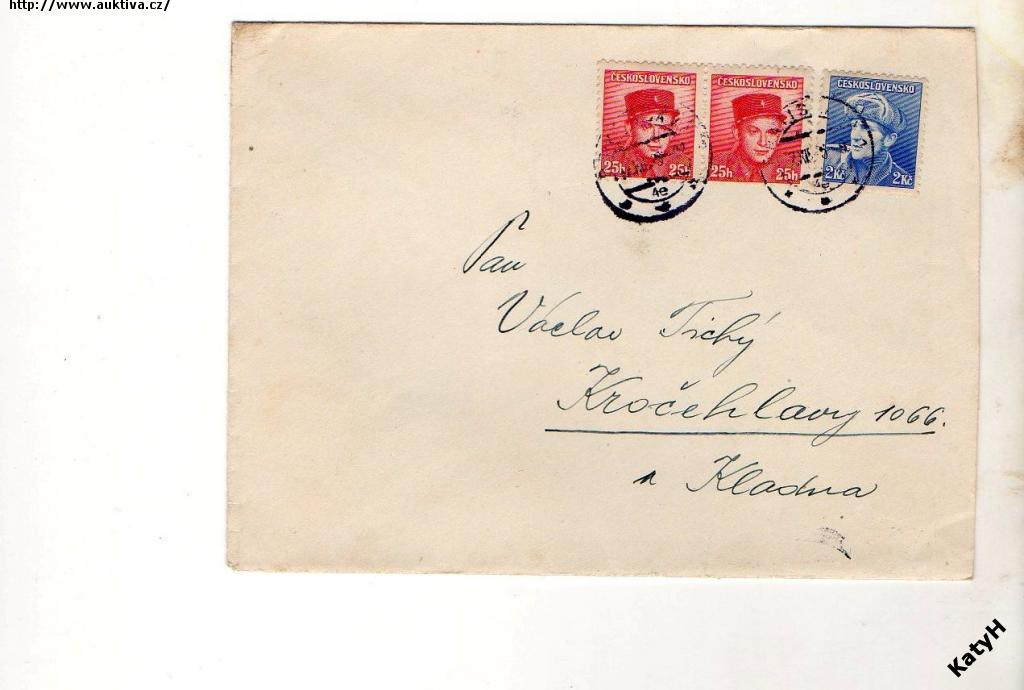 http://www.auktiva.cz/
ČESKOSLOVENSKO ČESKOSLOVENSKO ČESKOSLOVENSKO
25h 25h 25h 25h 2Kč 2Kč
4e 4e
Pan
Václav Tichý
Kročehlavy 1066.
u Kladna
KatyH